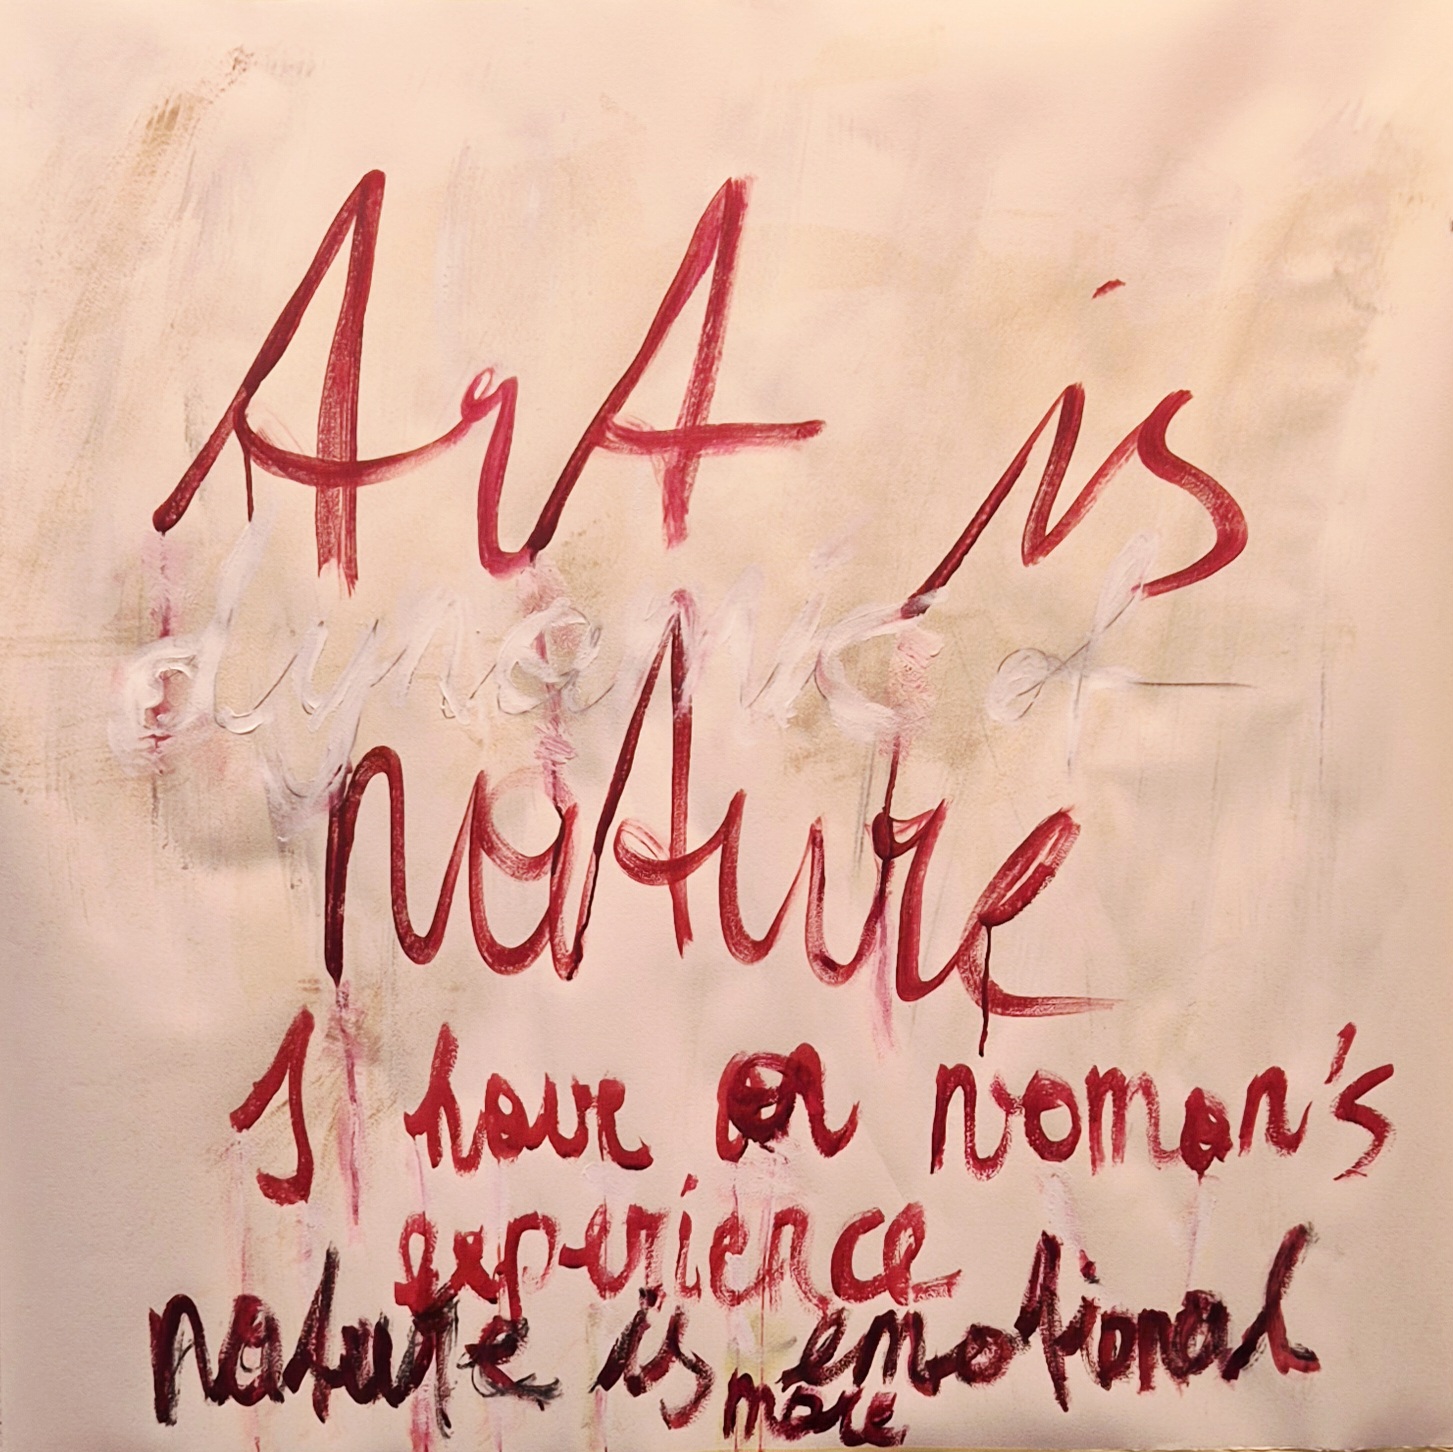 Art is
dynamic of
nature
I have a woman's
experience
nature is emotional
more